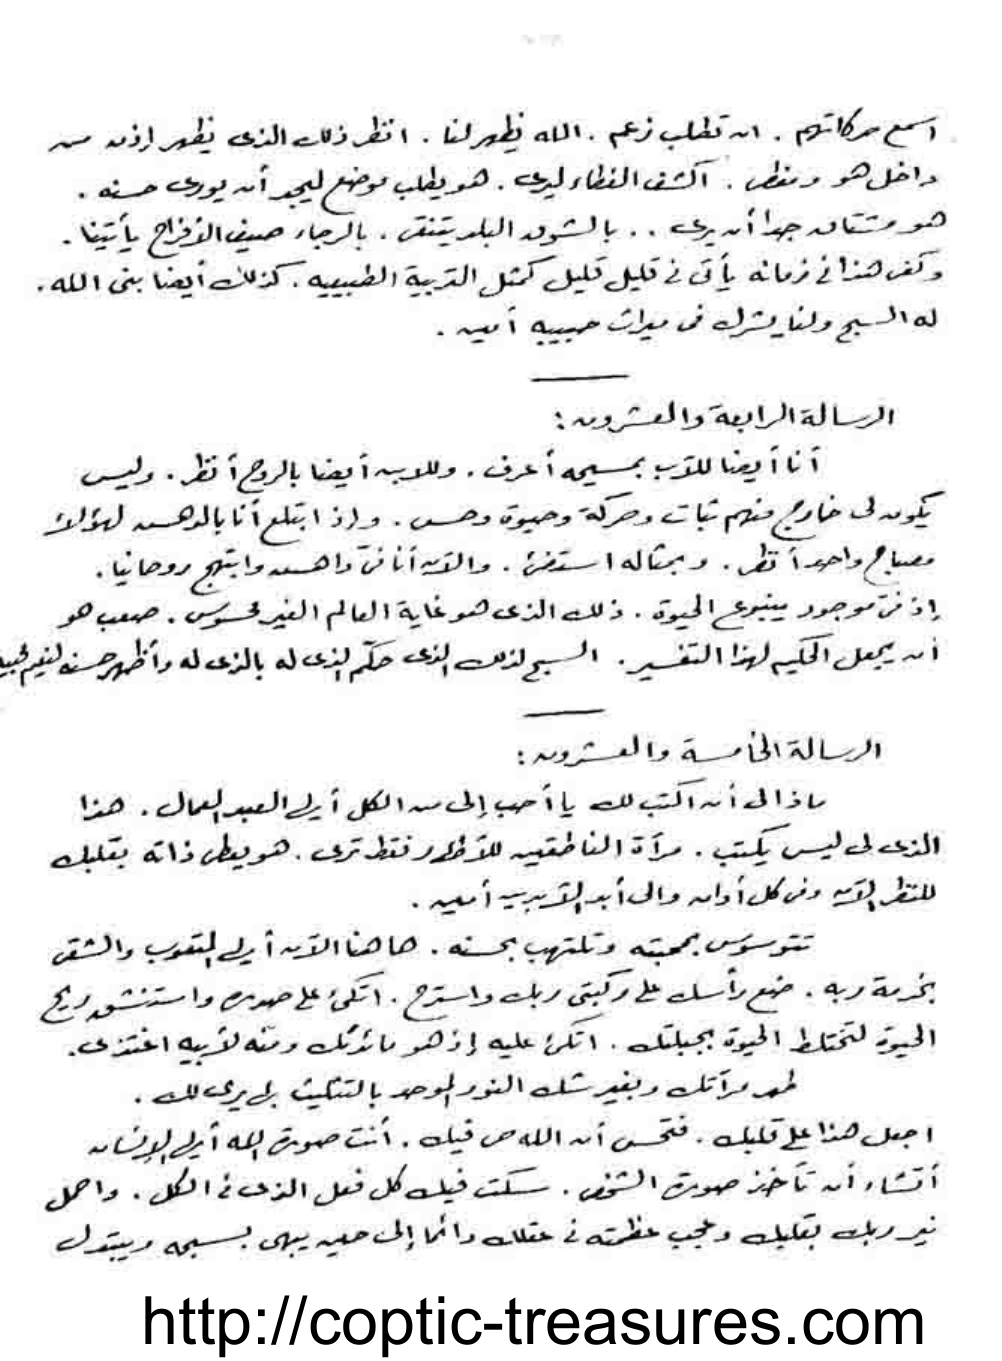 اسمع حركاتهم . ان تطلب زعم . الله يظهر لنا . انظر ذلك الذى يظهر اذن من
داخل هو ومغطى . اكشف الغطاء ليرى . هو يطلب موضع ليجد أن يورى حسنه .
هو مشتاق جداً أن يرى . . بالشوق البلد يتنقى . بالرجاء صيف الأفراح يأتينا .
وكف هذا فى زمانه يأتى فى قليل قليل كمثل التربية الطبيعية . كذلك أيضا بنى الله .
له السبح ولنا يشرك فى ميراث حبيبه أمين .
الرسالة الرابعة والعشرون :
أنا أيضا للآب بمسيحه أعرف . وللابن أيضا بالروح أنظر . وليس
يكون لى خارج منهم ثبات وحركة وحيوة وحس . وإذ ابتلع أنا بالدهس لهؤلاء
مصباح واحد أنظر . وبمثاله استضئ . والآن أنا فىّ داهس وابتهج روحانيا .
إذ فىّ موجود ينبوع الحيوة . ذلك الذى هو غاية العالم الغير محسوس . صعب هو
أن يجعل الحكيم لهذا التفسير . السبح لذلك الذى حكّم الذى له بالذى له وأظهر حسنه
الرسالة الخامسة والعشرون :
ماذا لى أن اكتب لك يا أحب إلى من الكل أيها العبد العمال . هذا
الذى لى ليس يكتب . مرآة الناطقين للأطهار فقط ترى . هو يعطى ذاته بقلبك
للنظر الآن وفى كل أوان والى أبد الآبدين أمين .
تتوسوس بمحبته وتلتهب بحسنه . ها هنا الآن أيها المتعوب والشقى
بخدمة ربه . ضع رأسك على ركبتى ربك واسترح . اتكئ على صدره واستنشق ريح
الحيوة لتختلط الحيوة بجبلتك . اتكئ عليه إذ هو مائدتك ومنه لأبيه اغتذى .
طهر مرآتك وبغير شك النور الموحد بالتثليث بها يرى لك .
اجعل هذا على قلبك . فتحس أن الله حى فيك . أنت صورة الله أيها الإنسان
أتشاء أن تأخذ صورة الشخص . سكت فيك كل فعل الذى فى الكل . واحمل
نير ربك بقلبك وعجب عظمته فى عقلك دائما إلى حين يبهى بسبحه ويتبدل
http://coptic-treasures.com